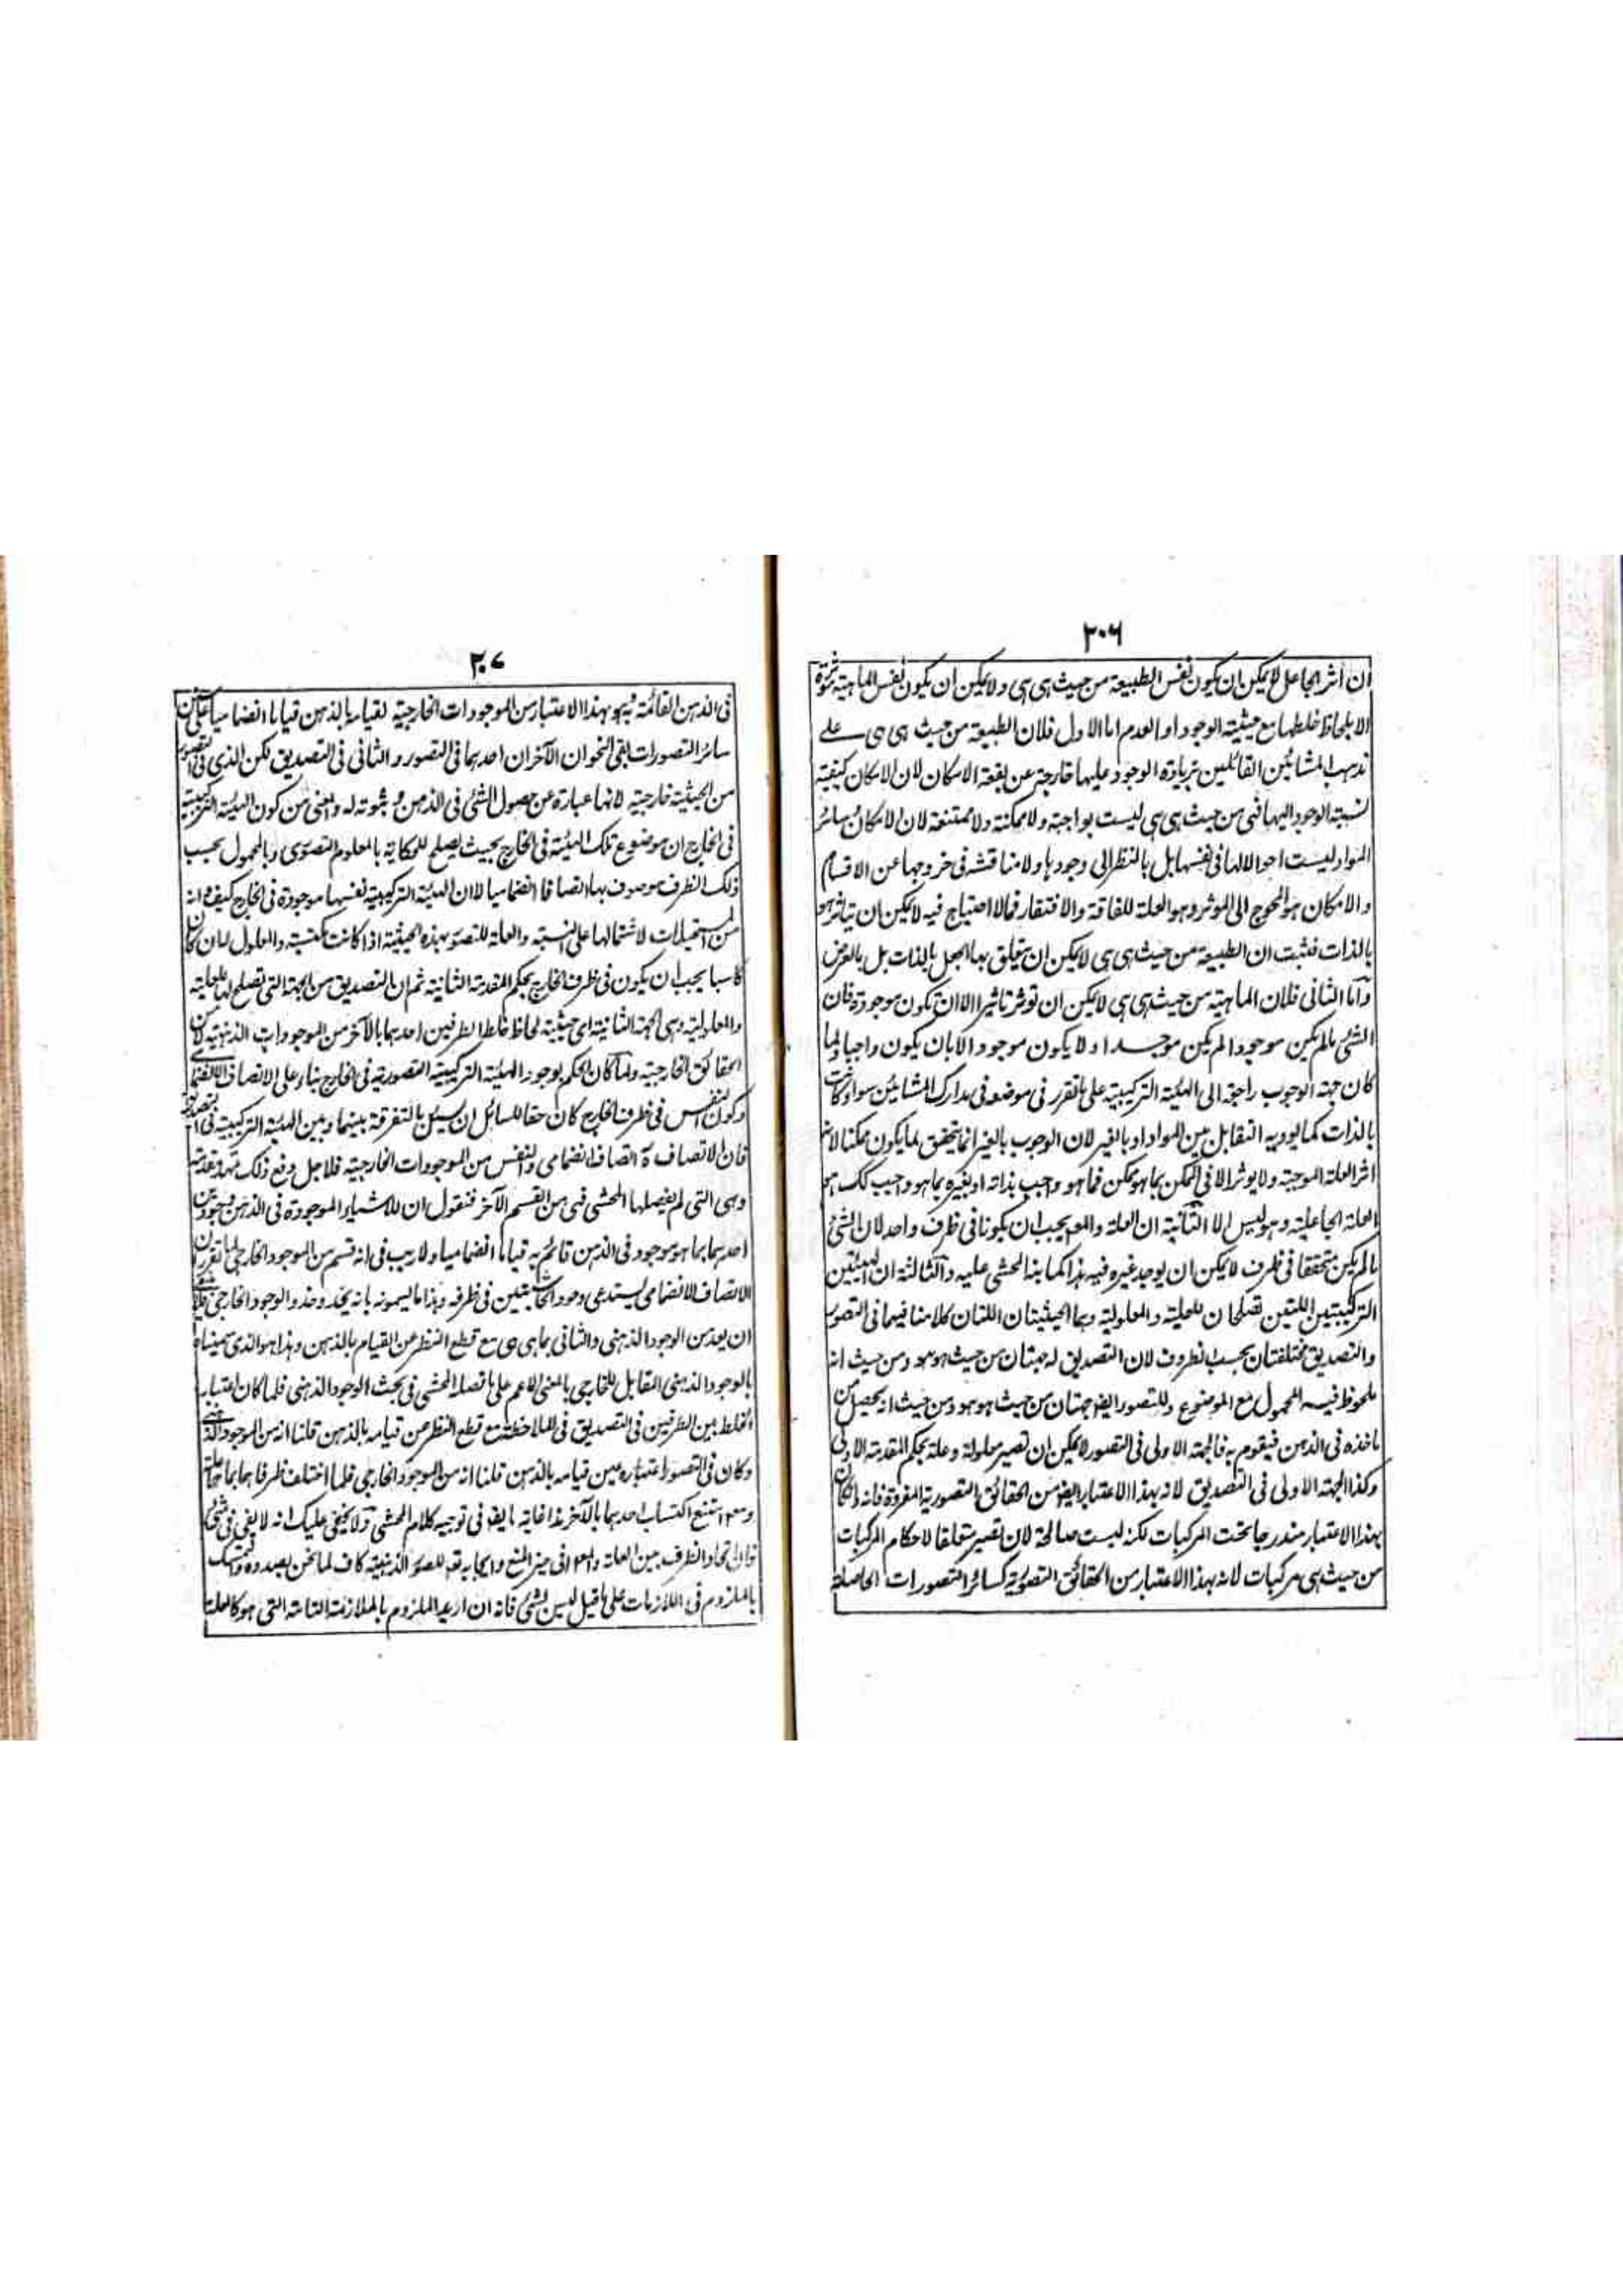 ٢٠٦
ان اثر الجاعل لا يمكن ان يكون نفس الطبيعة من حيث هى هى ولا يمكن ان يكون نفس الماهية مؤثرة
الا بلحاظ خلطها مع حيثية الوجود او العدم اما الاول فلان الطبيعة من حيث هى هى على
مذهب المشائين القائلين بزيادة الوجود عليها خارجة عن بقعة الامكان لان الامكان كيفية
نسبة الوجود اليها فهى من حيث هى هى ليست بواجبة ولا ممكنة ولا ممتنعة لان الامكان وسائر
المواد ليست احوالا لها فى نفسها بل بالنظر الى وجودها ولا مناقشة فى خروجها عن الاقسام
والامكان هو المحوج الى الموثر وهو العلة للفاقة والافتقار فما لا احتياج فيه لا يمكن ان يتاثر هو
بالذات فثبت ان الطبيعة من حيث هى هى لا يمكن ان يتعلق بها الجعل بالذات بل بالعرض
وآما الثانى فلان الماهية من حيث هى هى لا يمكن ان توثر تاثيرا الا ان تكون موجودة فان
الشئ ما لم يكن موجودا لم يكن موجدا ولا يكون موجودا الا بان يكون واجبا ولما
كان جهة الوجوب راجعة الى الهيئة التركيبية على ما تقرر فى موضعه فى مدارك المشائين سواء كانت
بالذات كما يوديه التقابل بين المواد او بالغير لان الوجوب بالغير انما يتحقق لما يكون ممكنا لانه
اثر العلة الموجبة ولا يوثر الا فى الممكن بما هو ممكن فما هو واجب بذاته او بغيره بما هو واجب كك هو
العلة الجاعلية وهو ليس الا الثانية ان العلة والمعـ يجب ان يكونا فى ظرف واحد لان الشئ
ما لم يكن متحققا فى ظرف لا يمكن ان يوجد غيره فيه هذا كما بنه المحشى عليه وآلثالثة ان الهيئتين
التركيبيتين اللتين تصلحان للعلية والمعلولية وهما الحيثيتان اللتان كلامنا فيهما فى التصور
والتصديق مختلفتان بحسب الظروف لان التصديق له جهتان من حيث هو هو ومن حيث انه
ملحوظ فيه المحمول مع الموضوع وللتصور ايضا جهتان من حيث هو هو ومن حيث انه يحصل من
ماخذه فى الذهن فيقوم به فالجهة الاولى فى التصور لا يمكن ان تصير معلولة وعلة بحكم المقدمة الاولى
وكذا الجهة الاولى فى التصديق لانه بهذا الاعتبار ايضا من الحقائق التصورية المفردة فانه وان كان
بهذا الاعتبار مندرجا تحت المركبات لكنه ليست صالحة لان تصير متعلقا لاحكام المركبات
من حيث هى مركبات لانه بهذا الاعتبار من الحقائق التصورية كسائر التصورات الحاصلة
٢٠٧
فى الذهن القائمة به وهو بهذا الاعتبار من الموجودات الخارجية لقيامه بالذهن قياما انضماميا على
سائر التصورات بقى النحوان الآخران احدهما فى التصور والثانى فى التصديق لكن الذى فى التصور
من الحيثية خارجية لانها عبارة عن حصول الشئ فى الذهن وثبوته له والمعنى من كون الهيئة التركيبية
فى الخارج ان موضوع تلك الهيئة فى الخارج بحيث يصلح للحكاية بالمعلوم التصورى وبالمحمول بحسب
ذلك الظرف موصوف بها اتصافا انضماميا لا ان الهيئة التركيبية نفسها موجودة فى الخارج كيف وانه
من المستحيلات لاشتمالها على النسبة والعلة للتصور بهذه الحيثية اذا كانت مكتسبة والمعلول لها ان كان
كاسبا يجب ان يكون فى ظرف الخارج بحكم المقدمة الثانية ثم ان التصديق من الجهة التى تصلح لها للعلية
والمعلولية وهى الجهة الثانية اى حيثية لحاظ خلط الطرفين احدهما بالآخر من الموجودات الذهنية لا من
الحقائق الخارجية ولما كان الحكم بوجود الهيئة التركيبية التصورية فى الخارج بناء على الاتصاف الانضمامى
وكون النفس فى ظرف الخارج كان حقا للسائل ان يسئل بالتفرقة بينهما وبين الهيئة التركيبية فى التصديق
فان الاتصاف ثمه اتصاف انضمامى والنفس من الموجودات الخارجية فلاجل دفع ذلك مهد مقدمة
وهى التى لم يفصلها المحشى فهى من القسم الآخر فنقول ان للاشياء الموجودة فى الذهن وجودين
احدهما بما هو موجود فى الذهن قائم به قياما انضماميا ولا ريب فى انه قسم من الموجود الخارجى لما تقرر ان
الاتصاف الانضمامى يستدعى وجود الحاشيتين فى ظرفه وهذا ما يسمونه بانه يحذو حذو الوجود الخارجى
ان يعد من الوجود الذهنى والثانى بما هى هى مع قطع النظر عن القيام بالذهن وهذا هو الذى سميناه
بالوجود الذهنى المقابل للخارجى بالمعنى الاعم على ما فصله المحشى فى بحث الوجود الذهنى فلما كان اعتبار
الخلط بين الطرفين فى التصديق فى الملاحظة مع قطع النظر عن قيامه بالذهن قلنا انه من الموجود الذهنى
وكان فى التصور اعتباره عين قيامه بالذهن قلنا انه من الموجود الخارجى فلما اختلف ظرفاهما بما هما علة
ومعـ امتنع اكتساب احدهما بالآخر هذا غاية ما يقـ فى توجيه كلام المحشى وآلا يخفى عليك انه لا يغنى فى شئ
اتحاد الظرف بين العلة والمعـ فى حيز المنع وايجابه فى الصور الذهنية كاف لما نحن بصدده وتمسك
بالملزوم فى اللازمات على ما قيل ليس بشئ فانه ان اريد الملزوم بالملازمة التامة التى هو كالعلة